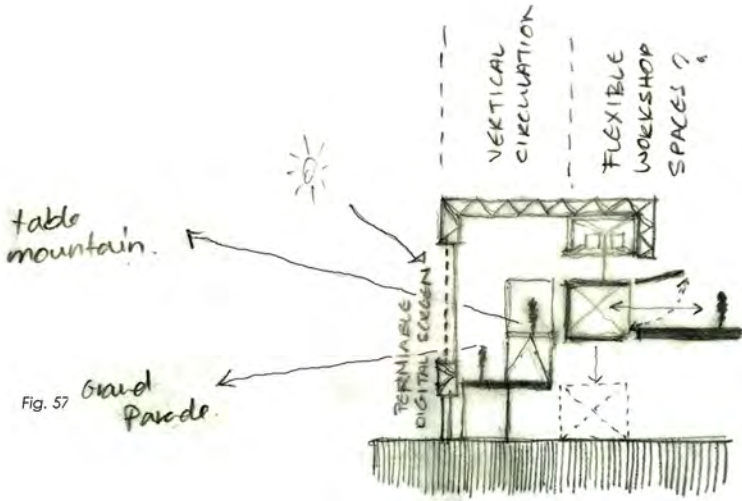 VERTICAL
CIRCULATION
FLEXIBLE
WORKSHOP
SPACES?
table
mountain.
PERMIABLE
DIGITAL SCREEN
Fig. 57
Grand
Parade.